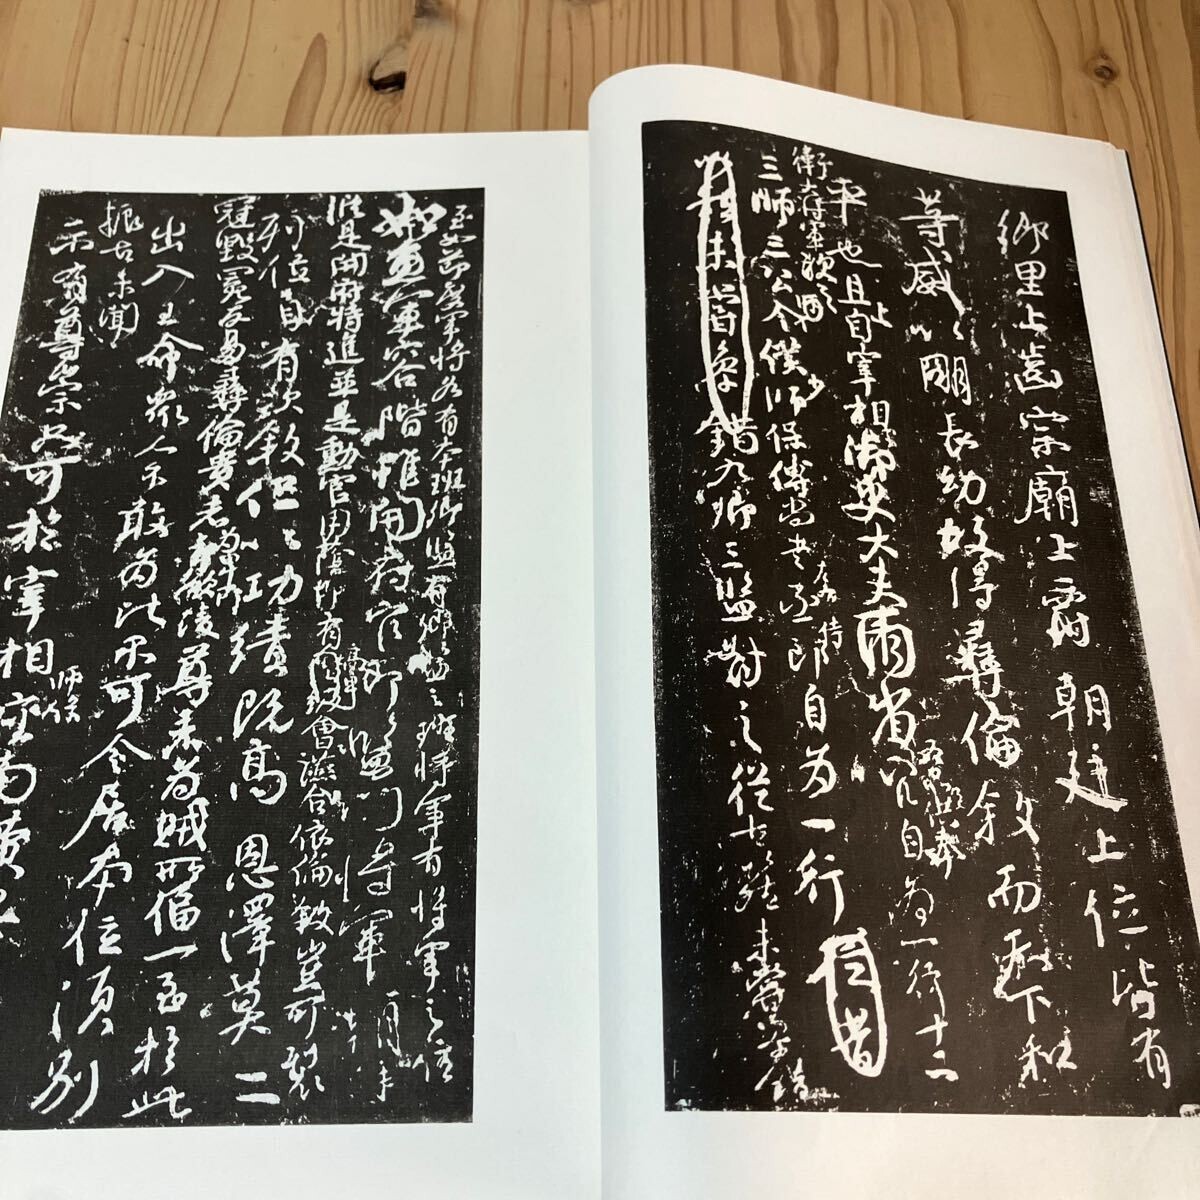 鄉里上齒宗廟上爵朝廷上位皆有
等威以明長幼故得彝倫敘而天下和
平也且上自宰相御史大夫兩省供奉官自為一行十二
衛大將軍次之
三師三公令僕少師保傅尚書左右丞侍郎自為一行
九卿三監對之從古以然未嘗參錯
至如節度軍將各有本班卿監有卿監之班將軍有將軍之位
如魚軍容階雖開府官即監門將軍朝廷
縱是開府特進並是勳官用蔭即有高卑會讌合依倫敘豈可裂
列位自有次敘但以功績既高恩澤莫二
冠毀冕反易彝倫貴者為卑所凌尊者為賊所偪一至於此
出入王命眾人不敢為比不可令居本位須別
振古未聞
示有尊崇只可於宰相師保座南橫安